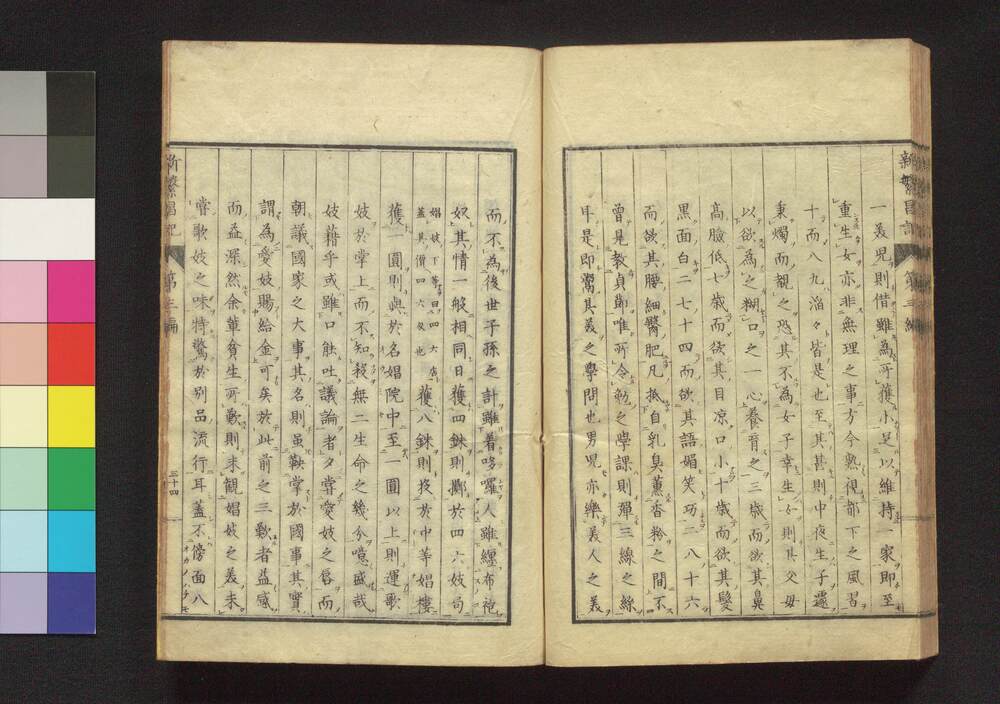 新繁昌記 第三編
一美児則借雖為所獲小足以維持一家即至
重生女亦非無理之事方今熟視都下之風習
十而八九滔々皆是也至其甚則中夜生子遽
秉燭而覩之恐其不為女子幸生女則其父母
以欲為之糊口之一心養育之三歳而欲其鼻
高臉低七歳而欲其目凉口小十歳而欲其髮
黒面白二七十四而欲其語媚笑巧二八十六
而欲其腰細臀肥凡抵自乳臭薫香粉之間不
曾見教貞節唯所令勉之學課則彈三線之絲
耳是即鬻其美之學問也男児亦樂美人之美
而不為後世子孫之計雖着哆囉人雖纏布袍
奴其情一般相同日獲四銖則擲於四六妓局
娼妓下等曰四四大店
蓋其價四六夂也
獲八銖則投於中等娼樓
獲一圓則與於名娼院中至一圓以上則運歌
妓於掌上而不知殺無二生命之幾分噫盛哉
妓藉乎或雖口能吐議論者夕甞愛妓之唇而
朝議國家之大事其名則虽鞅掌於國事其實
謂為愛妓賜給金可矣於此前之三歎者益感
而益深然余輩貧生所歎則未覩娼妓之美未
甞歌妓之味特驚於別品流行耳蓋不傍面八
新繁昌記 第三編 三十四